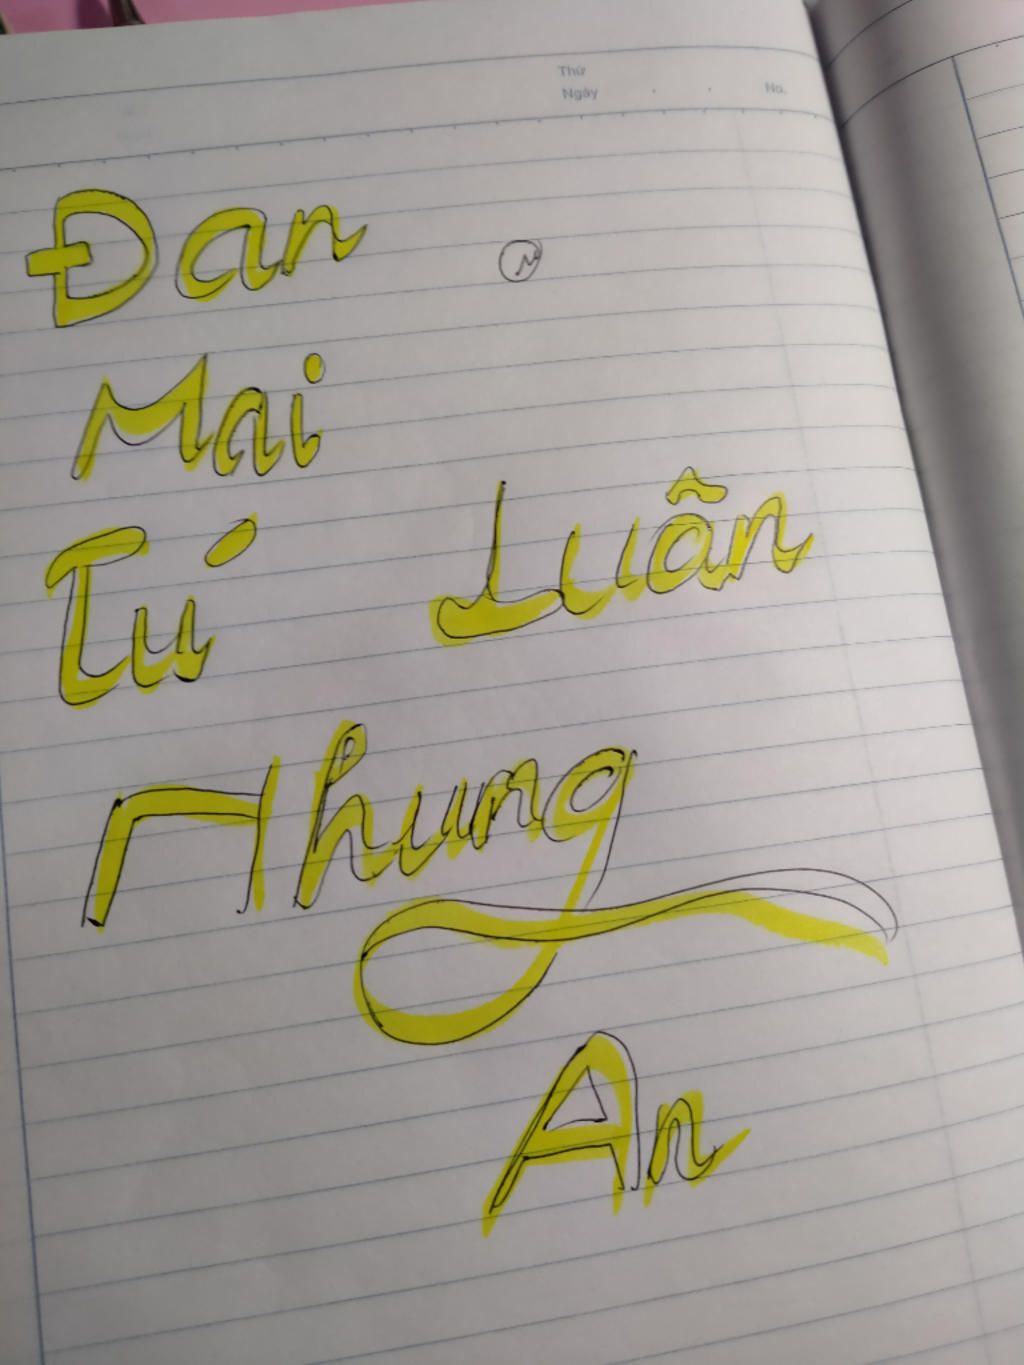 Thứ
Ngày No.
Đan
Mai
Tú Luân
Nhung
An